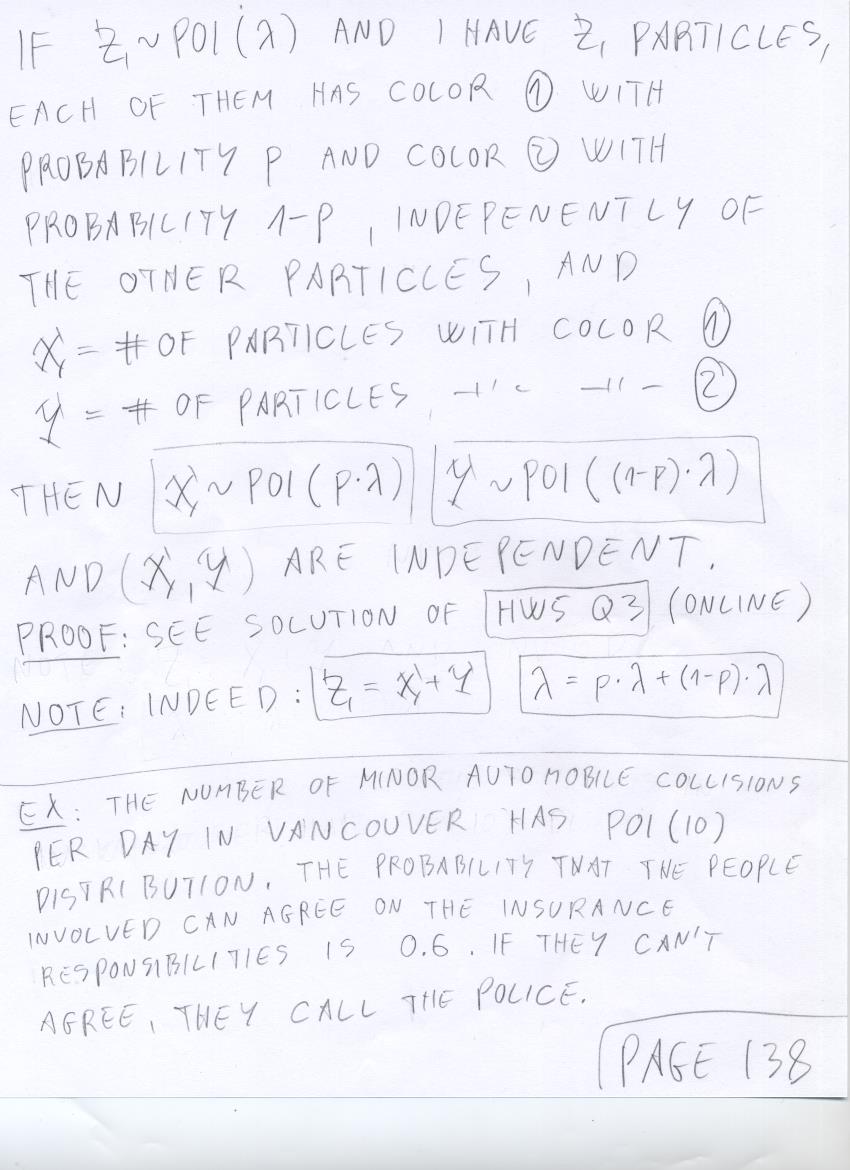 IF Z ~ POI(λ) AND I HAVE Z PARTICLES,
EACH OF THEM HAS COLOR ① WITH
PROBABILITY P AND COLOR ② WITH
PROBABILITY 1-P, INDEPENENTLY OF
THE OTHER PARTICLES, AND
X = # OF PARTICLES WITH COLOR ①
Y = # OF PARTICLES -"- -"- ②
THEN X ~ POI(p·λ) Y ~ POI((1-p)·λ)
AND (X, Y) ARE INDEPENDENT.
PROOF: SEE SOLUTION OF HW5 Q3 (ONLINE)
NOTE: INDEED: Z = X + Y λ = p·λ + (1-p)·λ
EX: THE NUMBER OF MINOR AUTOMOBILE COLLISIONS
PER DAY IN VANCOUVER HAS POI(10)
DISTRIBUTION. THE PROBABILITY THAT THE PEOPLE
INVOLVED CAN AGREE ON THE INSURANCE
RESPONSIBILITIES IS 0.6. IF THEY CAN'T
AGREE, THEY CALL THE POLICE.
PAGE 138